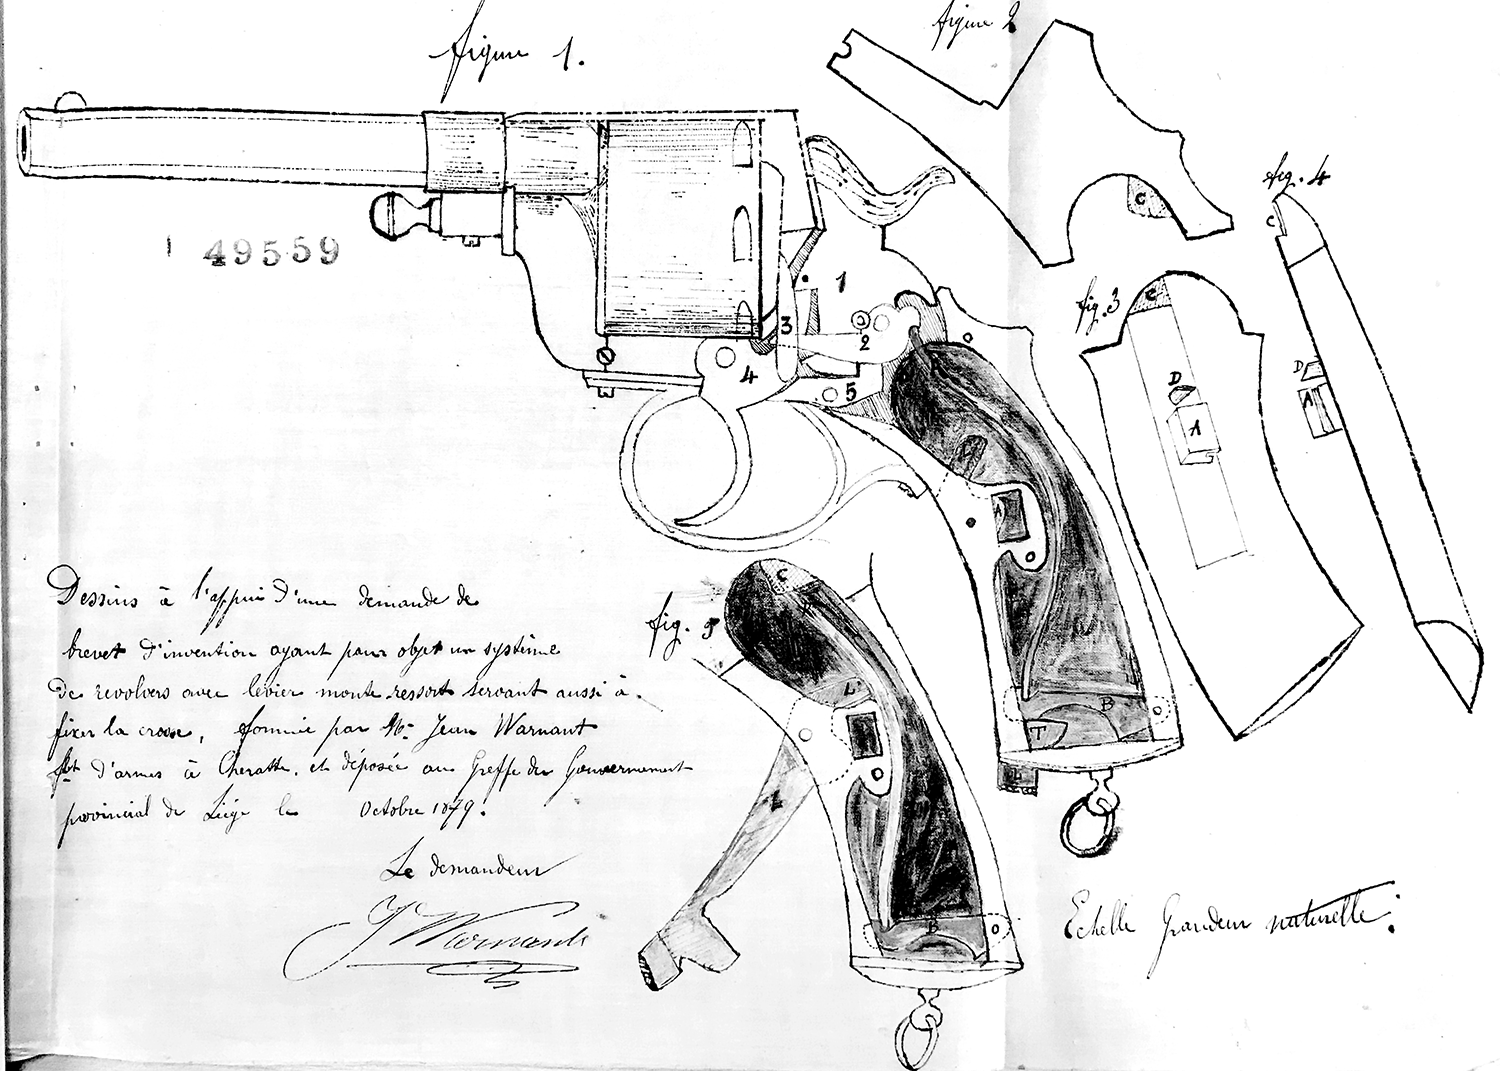 figure 1.
figure 2
fig. 4
C
C
49559
fig. 3
C
1
3
2
4
5
D
A
D
A
L
A
Dessins à l'appui d'une demande de
brevet d'invention ayant pour objet un système
de revolvers avec levier monte-ressort servant aussi à
fixer la crosse, formée par Mr. Jean Warnant
fbt d'armes à Cheratte. et déposée au Greffe du Gouvernement
provincial de Liége le Octobre 1879.
Le demandeur
J Warnant
fig. 5
C
L'
L
B
B
T
L
Echelle Grandeur naturelle.